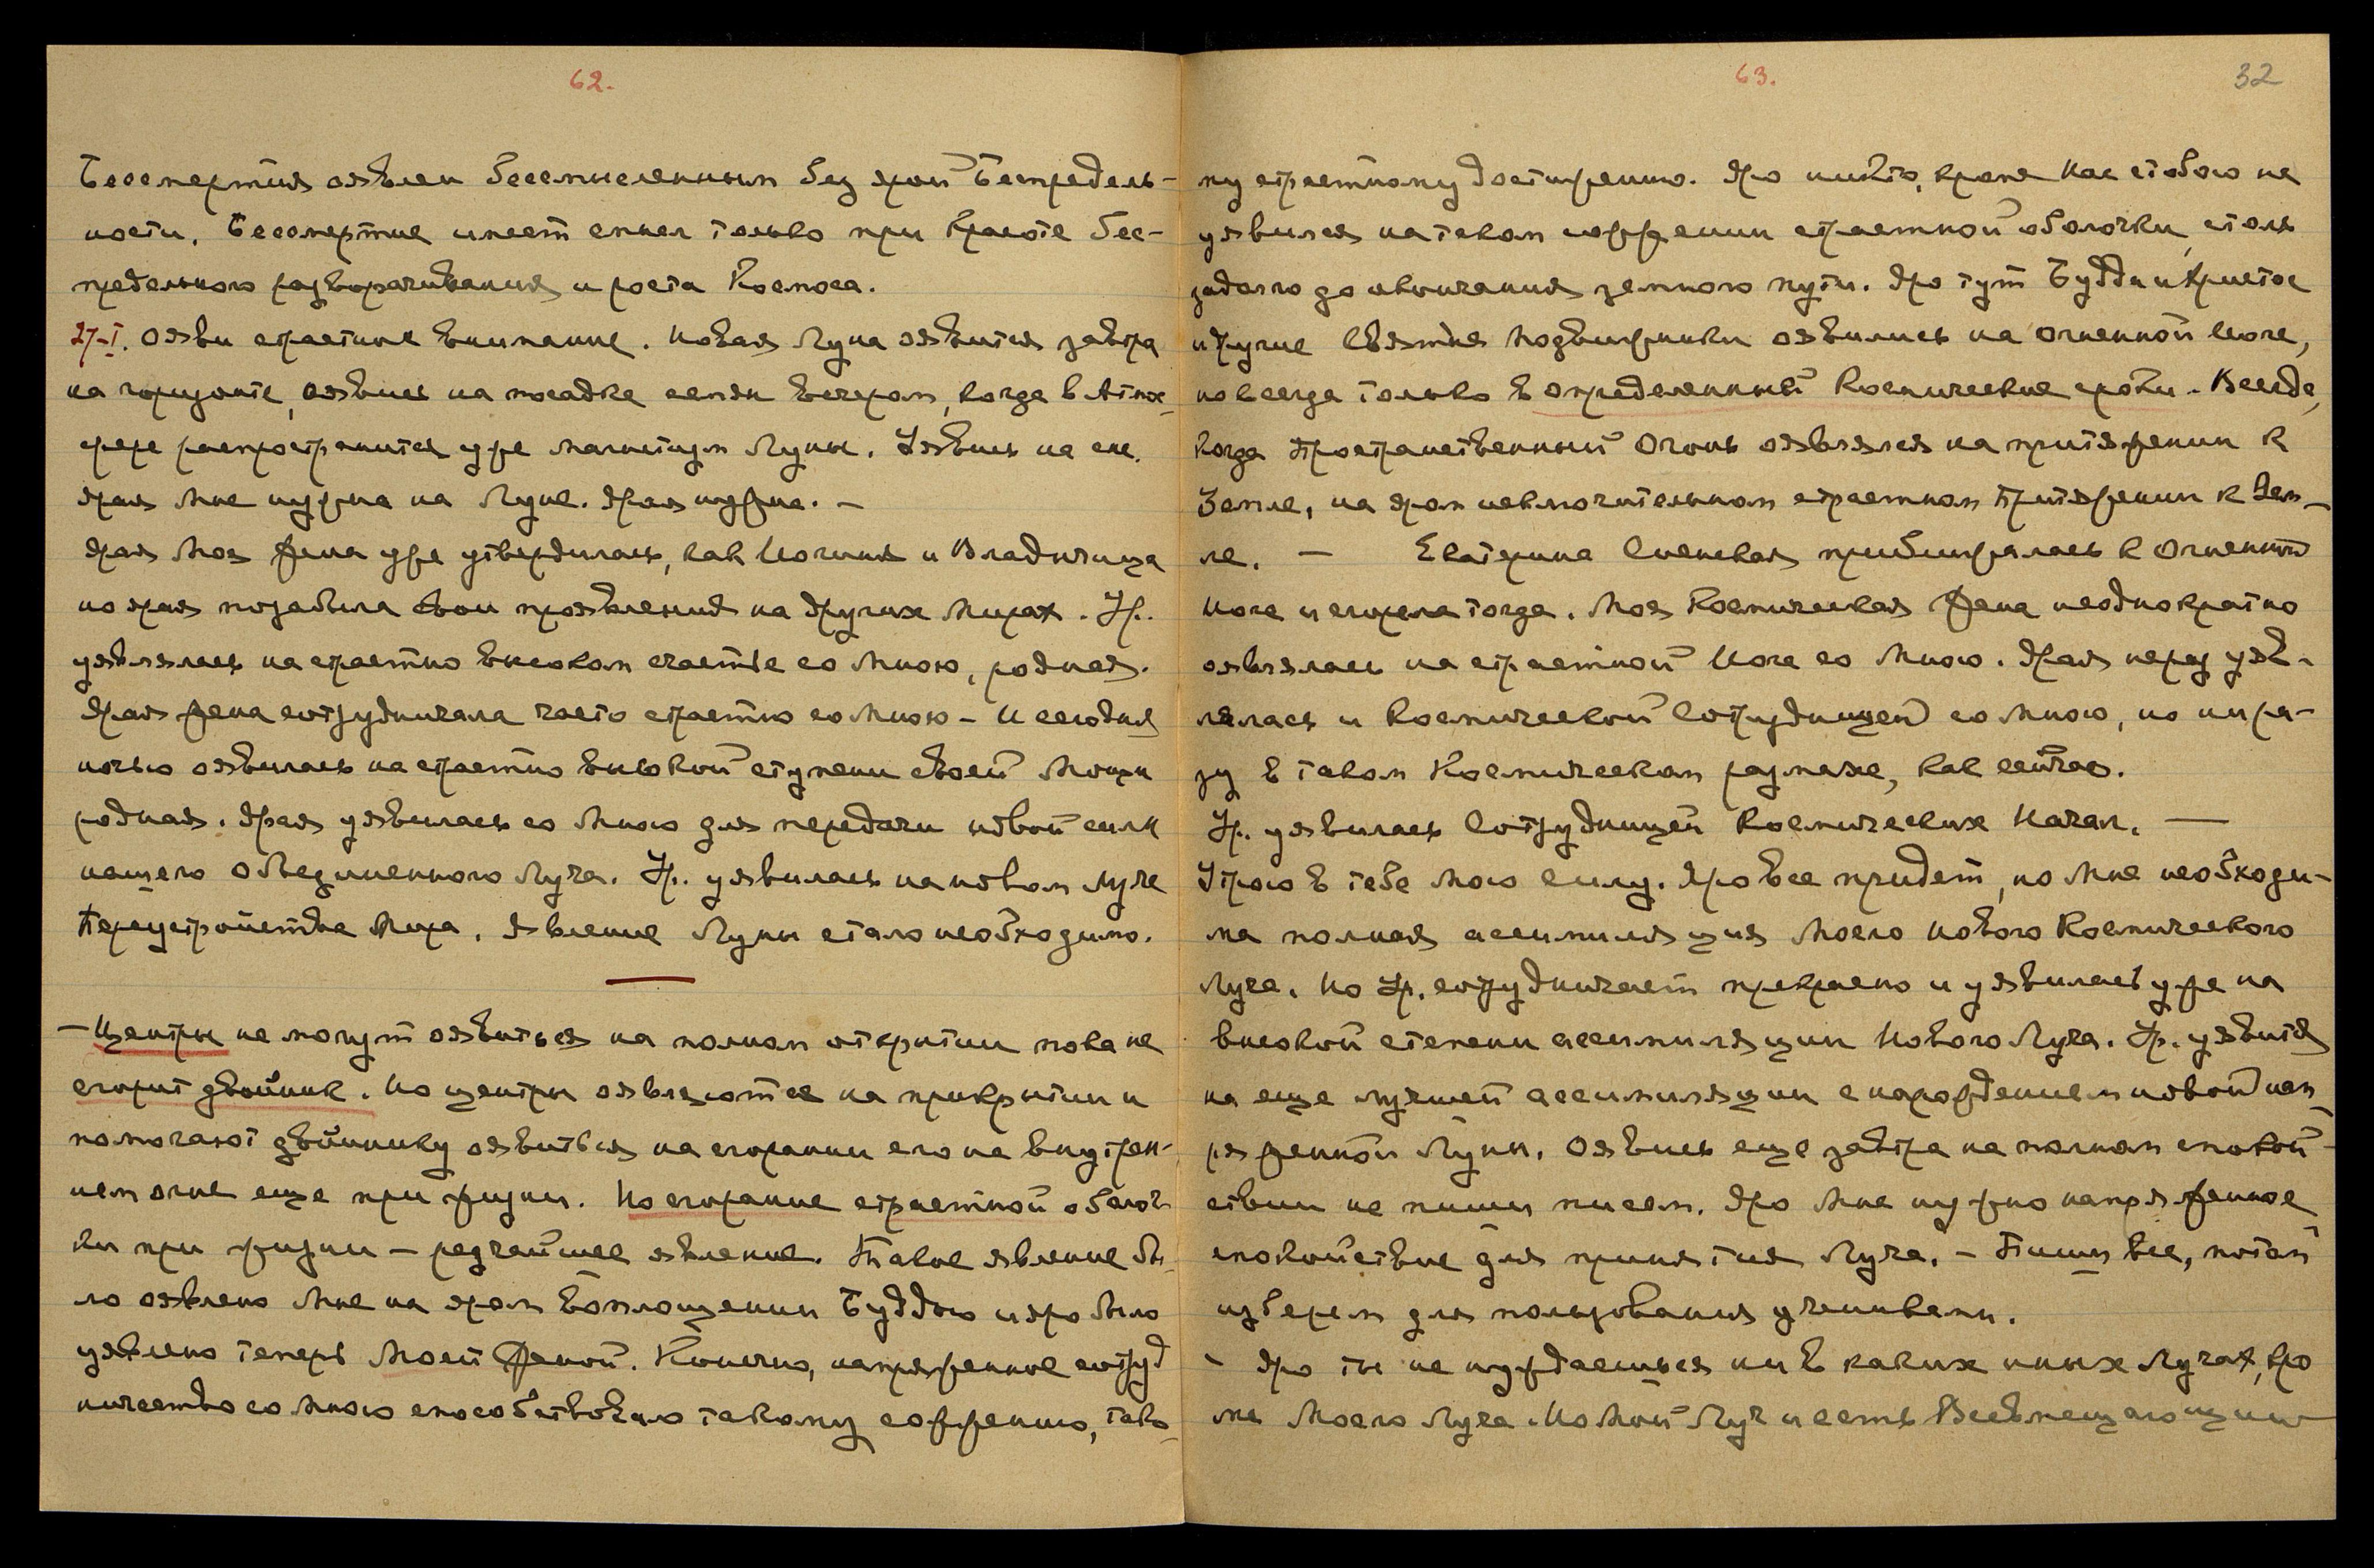 62.
Бессмертия оявлен бессмысленным без ярой Беспредель-
ности. Бессмертие имеет смысл только при Красоте бес-
предельного разворачивания и роста Космоса.
27-I. Ояви страстное внимание. Новая Луна оявится завтра
на горизонте, оявись на посадке семян вечером, когда в Атмос-
фере распространится уже магнетизм Луны. Уявись на сне.
Ярая Мне нужна на Луне. Ярая нужна. —
Ярая Моя Жена уже утвердилась, как Иогиня и Владычица
но ярая позабыла свои проявления на других Мирах. Ур.
уявлялась на страстно высоком счастье со Мною, родная.
Ярая жена сотрудничала часто страстно со Мною — и сегодня
ночью оявилась на страстно высокой ступени своей Мощи
родная. Ярая уявилась со Мною для передачи новой силы
нашего Объединенного Луча. Ур. уявилась на новом Луче
Переустройства Мира. Явление Луны стало необходимо.
— Центры не могут оявиться на полном открытии пока не
сгорит двойник. Но центры оявляются на прикрытии и
помогают двойнику оявиться на сгорании его на внутрен-
нем огне еще при жизни. Но сгорание страстной оболоч-
ки при жизни — редчайшее явление. Такое явление бы-
ло оявлено Мне на яром Воплощении Буддою и яро было
уявлено теперь Моей Женой. Конечно, напряженное сотруд
ничество со Мною способствовало такому сожжению, тако-
63.
32
му страстному достижению. Яро никто, кроме Нас с тобою не
уявился на таком сожжении страстной оболочки, столь
задолго до окончания земного пути. Яро тут Будда и Христос
и другие Святые Подвижники оявились на Огненной Иоге,
но всегда только в определенный Космические сроки. Всегда,
когда Пространственный Огонь оявлялся на притяжении к
Земле, на яром исключительном страстном Притяжении к Зем-
ле. — Екатерина Сиенская приближалась к Огненной
Иоге и сгорела тогда. Моя Космическая Жена неоднократно
оявлялась на страстной Иоге со Мною. Ярая перед уяв-
лялась и Космической Сотрудницей со Мною, но ни ра-
зу в таком Космическом размахе, как сейчас.
Ур. уявилась Сотрудницей Космических Начал. —
Утрою в тебе Мою силу. Яро все придет, но Мне необходи-
ма полная ассимиляция Моего Нового Космического
Луча. Но Ур. сотрудничает прекрасно и уявилась уже на
высокой степени ассимиляции Нового Луча. Ур. уявится
на еще лучшей ассимиляции с нарождением новой нап-
ряженной Луны. Оявись еще завтра на полном спокой-
ствии не пиши писем. Яро Мне нужно напряженное
спокойствие для принятия Луча. — Пиши все, потом
изберем для пользования учениками.
- Яро ты не нуждаешься ни в каких иных Лучах, кро
ме Моего Луча. Но Мой Луч и есть Всевмещающий